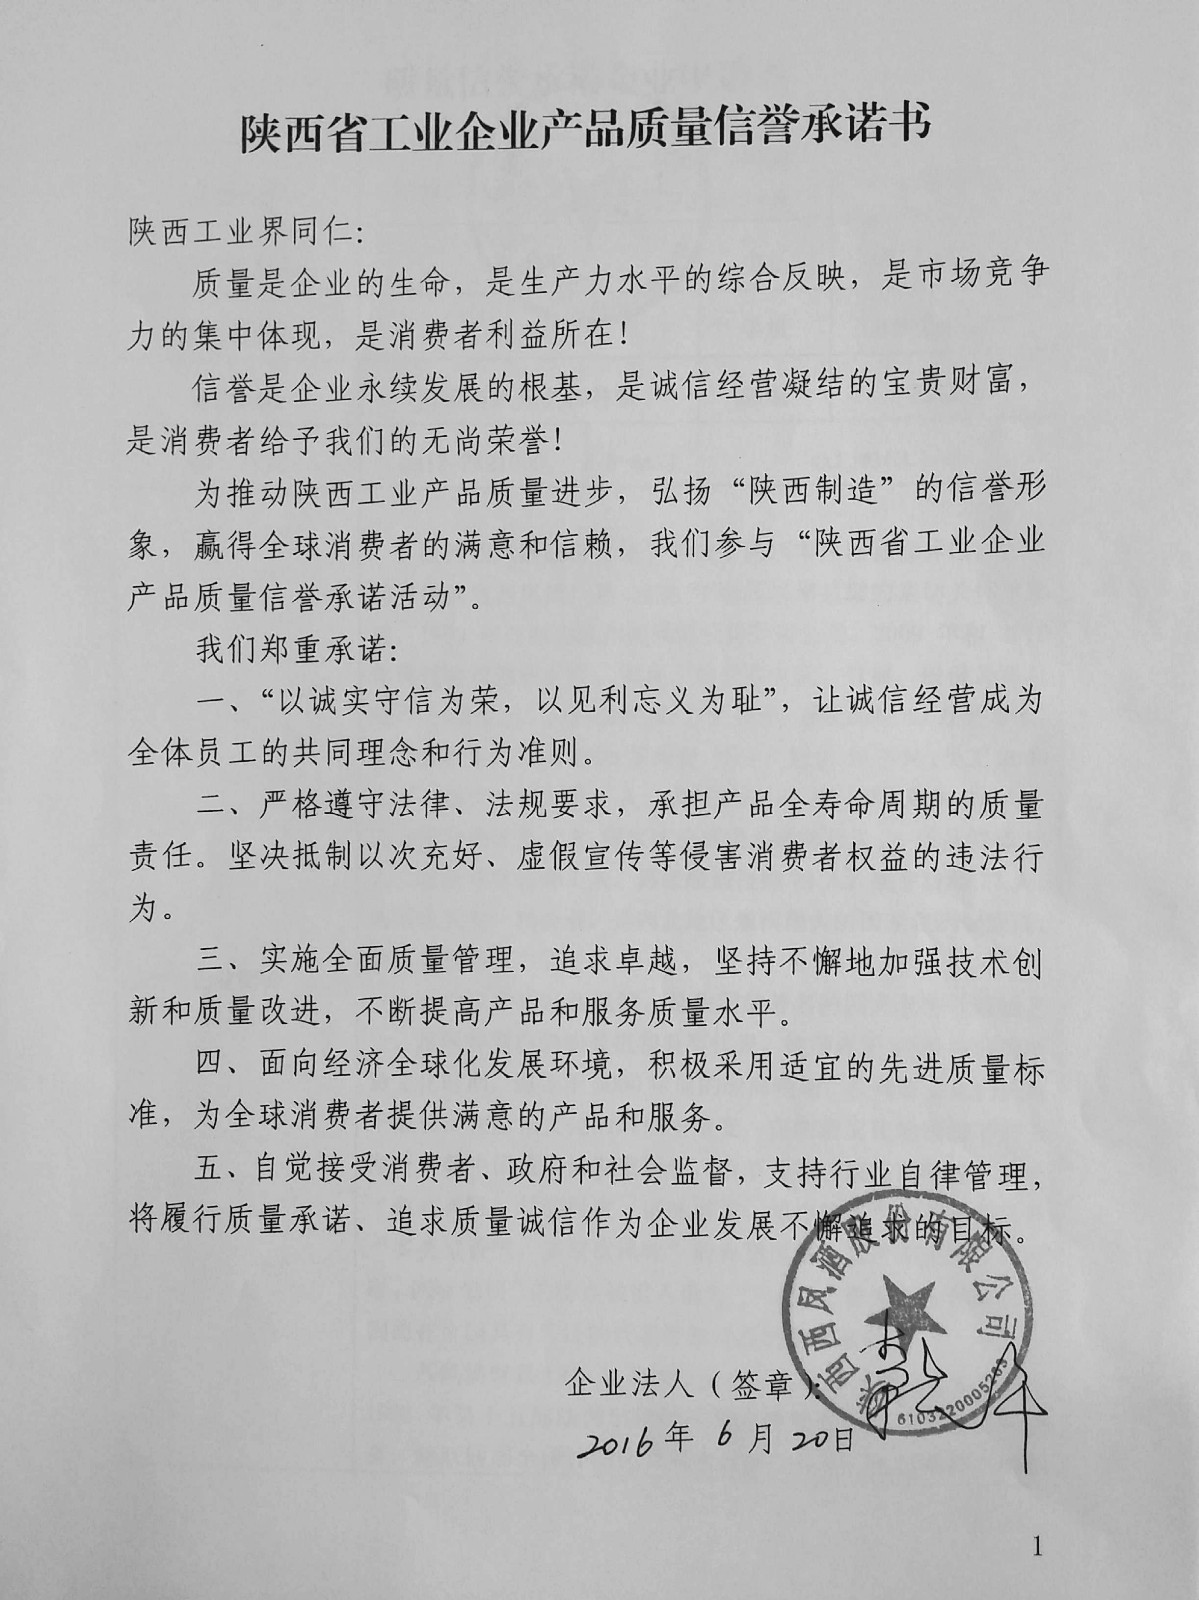 陕西省工业企业产品质量信誉承诺书
陕西工业界同仁：
质量是企业的生命，是生产力水平的综合反映，是市场竞争
力的集中体现，是消费者利益所在！
信誉是企业永续发展的根基，是诚信经营凝结的宝贵财富，
是消费者给予我们的无尚荣誉！
为推动陕西工业产品质量进步，弘扬“陕西制造”的信誉形
象，赢得全球消费者的满意和信赖，我们参与“陕西省工业企业
产品质量信誉承诺活动”。
我们郑重承诺：
一、“以诚实守信为荣，以见利忘义为耻”，让诚信经营成为
全体员工的共同理念和行为准则。
二、严格遵守法律、法规要求，承担产品全寿命周期的质量
责任。坚决抵制以次充好、虚假宣传等侵害消费者权益的违法行
为。
三、实施全面质量管理，追求卓越，坚持不懈地加强技术创
新和质量改进，不断提高产品和服务质量水平。
四、面向经济全球化发展环境，积极采用适宜的先进质量标
准，为全球消费者提供满意的产品和服务。
五、自觉接受消费者、政府和社会监督，支持行业自律管理，
将履行质量承诺、追求质量诚信作为企业发展不懈追求的目标。
陕西西凤酒股份有限公司
6103220005263
企业法人（签章）：
2016年6月20日
1